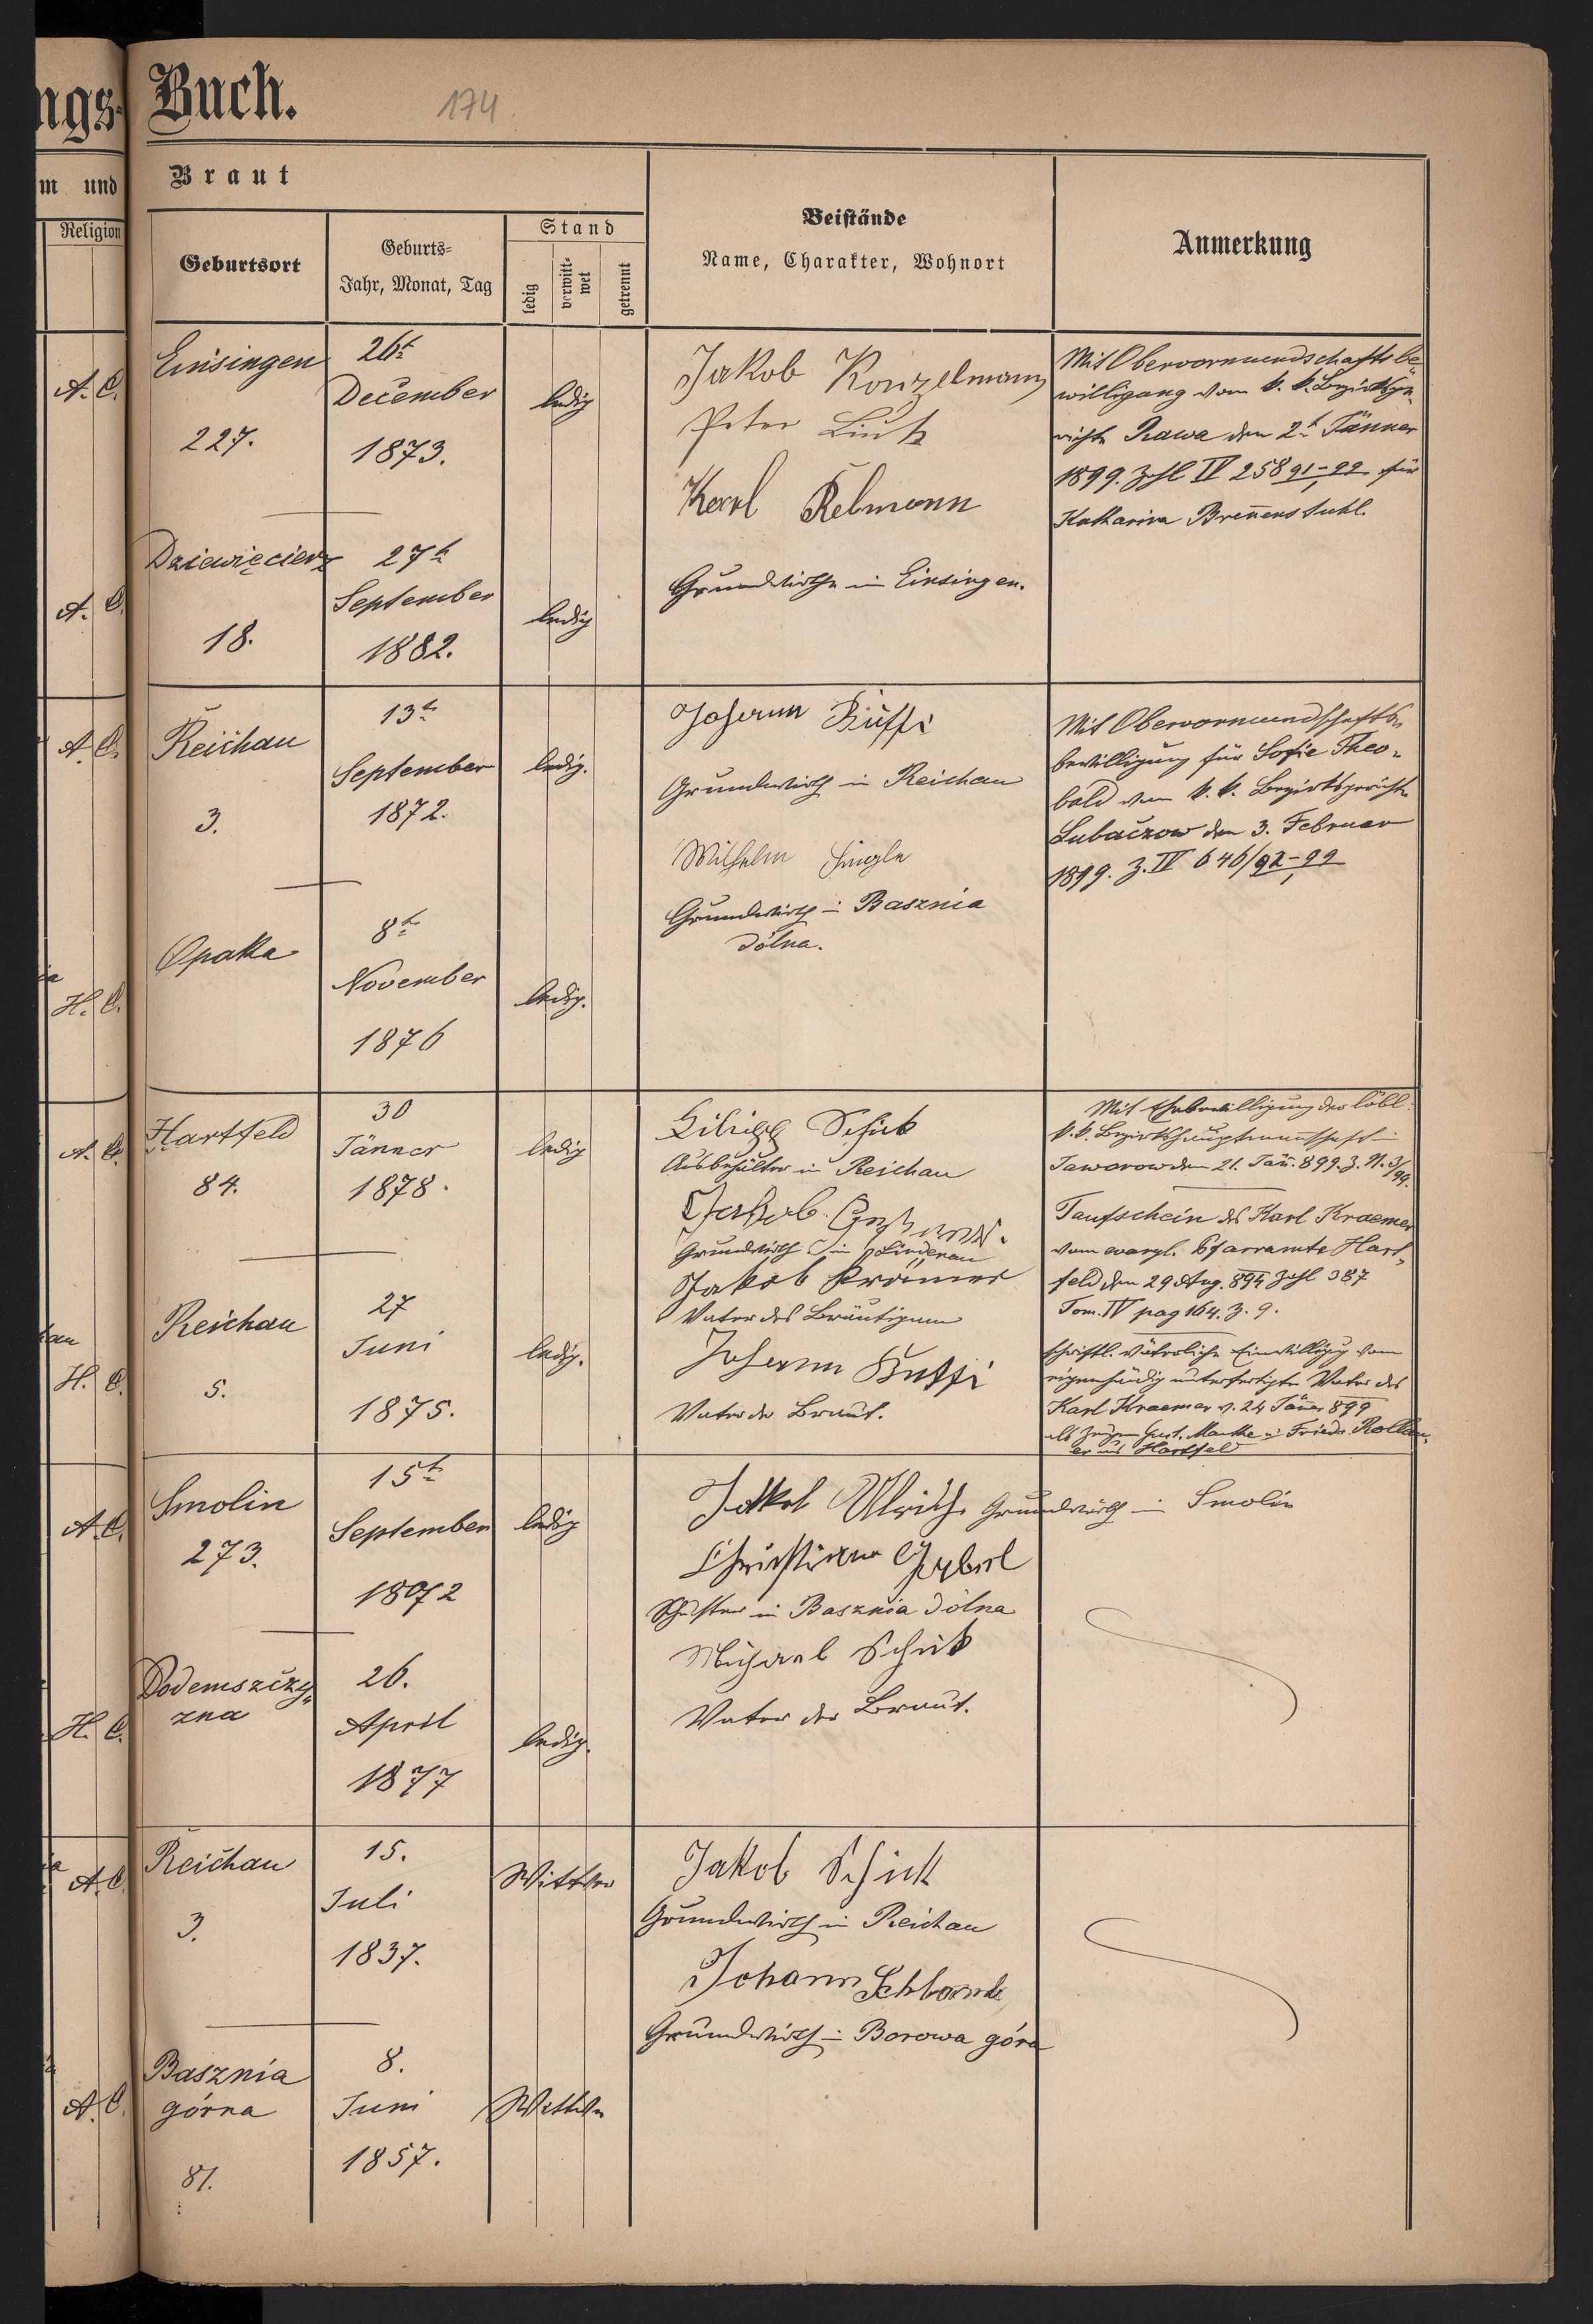 ngs-
Buch.
174.
m und
Braut
Religion
Geburtsort
Geburts-
Jahr, Monat, Tag
Stand
ledig
verwitt-
wet
getrennt
Beistände
Name, Charakter, Wohnort
Anmerkung
A. C.
Einsingen
227.
26t
December
1873.
ledig
Jakob Konzelmann
Peter
Karl Relmann
Grundwirthe in Einsingen.
Mit Obervormundschafts be-
willigung vom k. k. Bezirksge-
richte Rawa den 2t Jänner
1899. Zahl IV 258 91-99 für
Katharina Brennenstuhl.
A. C.
Dziewięcierz
18.
27t
September
1882.
ledig
A. C.
Reichau
3.
13t
September
1872.
ledig.
Johann
Grundwirth in Reichau
Wilhelm
Grundwirth in Basznia
dólna.
Mit Obervormundschafts-
bewilligung für Sofie Theo-
bald vom k. k. Bezirksgerichte
Lubaczow den 3. Februar
1899. Z. IV 646/92-99
H. C.
Opaka
8t
November
1876
ledig.
A. C.
Hartfeld
84.
30
Jänner
1878.
ledig
Schick
in Reichau
Jakob
Grundwirth in Lindenau
Jakob Krämer
Vater des Bräutigams
Johann
Vater der Braut.
Mit Ehebewilligung der löbl.
k. k. Bezirkshauptmannschaft in
Jaworow den 21. Jän. 899. Z. N. 3/99.
Taufschein des Karl Kraemer
vom evangl. Pfarramte Hart-
feld den 29 Aug. 894 Zahl 387
Tom. IV pag 164. Z. 9.
schriftl. väterliche Einwilligung vom
eigenhändig unterfertigten Vater des
Karl Kraemer v. 24 Jänner 899
als Zeugen Gust. Manke u. Friedr.
aus Hartfeld
H. C.
Reichau
5.
27
Juni
1875.
ledig.
A. C.
Smolin
273.
15t
September
1872
ledig
Jakob Ulrich Grundwirth in Smolin
Christian
Schuster in Basznia dólna
Michael Schick
Vater der Braut.
H. C.
Podemszczy-
zna
26.
April
1877
ledig.
A. C.
Reichau
3.
15.
Juli
1837.
Wittwer
Jakob Schick
Grundwirth in Reichau
Johann
Grundwirth in Borowa góra
A. C.
Basznia
górna
81.
8.
Juni
1857.
Wittwe